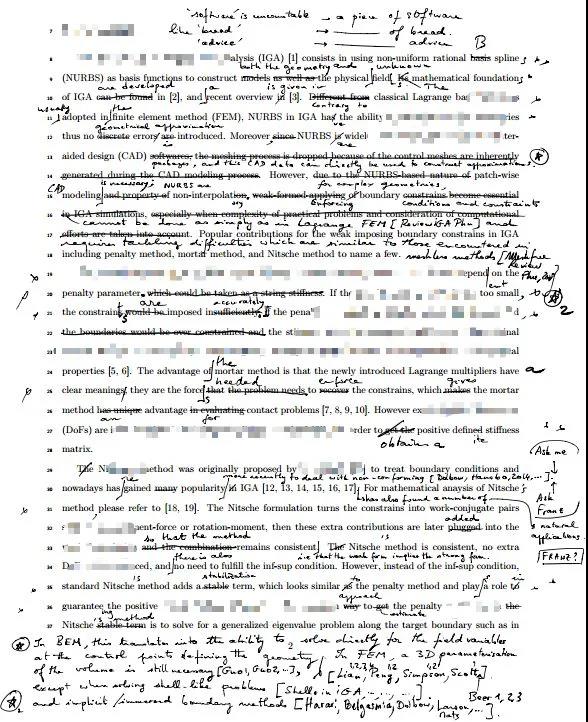 "software" is uncountable → a piece of software
like "bread" → ——— of bread.
"advice" → ——— advice B
7
8 alysis (IGA) [1] consists in using non-uniform rational basis spline
both the geometry and unknown
9 (NURBS) as basis functions to construct models as well as the physical field. Its mathematical foundations
are developed a is given in The
10 of IGA can be found in [2], and recent overview in [3]. Different from classical Lagrange ba
usually the contrary to
11 adopted in finite element method (FEM), NURBS in IGA has the ability ries
geometrical approximation
12 thus no discrete errors are introduced. Moreover since NURBS is widel ter-
are
13 aided design (CAD) softwares, the meshing process is dropped because of the control meshes are inherently
packages, and this CAD data can directly be used to construct approximations.
14 generated during the CAD modeling process. However, due to the NURBS-based nature of patch-wise
CAD is necessary NURBS are for complex geometries,
15 modeling and property of non-interpolation, weak-formed applying of boundary constrains become essential
enforcing conditions and constraints
16 in IGA simulations, especially when complexity of practical problems and consideration of computational
cannot be done as simply as in Lagrange FEM [Review IGA Phu] and
efforts are taken into account. Popular contributions for the weak imposing boundary constrains in IGA
requires tackling difficulties which are similar to those encountered in
18 including penalty method, mortar method, and Nitsche method to name a few. meshless methods [Meshfree Review
19 epend on the Phu,
20 penalty parameter, which could be taken as a string stiffness. If the too small,
are accurately
21 the constrains would be imposed insufficiently. If the penal d, 2
22 the boundaries would be over constrained and the sti nal
23 al
24 properties [5, 6]. The advantage of mortar method is that the newly introduced Lagrange multipliers have a
the needed enforce gives
25 clear meanings, they are the force that the problem needs to recover the constrains, which makes the mortar
26 method has unique advantage in evaluating contact problems [7, 8, 9, 10]. However ex
are for
27 (DoFs) are i rder to get the positive defined stiffness
obtain a ite
28 matrix.
Ask me
29 The Ni ethod was originally proposed by to treat boundary conditions and
more recently to deal with non-conforming [Dolbow, Hansbo, 2014, ...].
30 nowadays has gained many popularity in IGA [12, 13, 14, 15, 16, 17]. For mathematical anaysis of Nitsche's
has also found a number of
Ask Franz
31 method please refer to [18, 19]. The Nitsche formulation turns the constrains into work-conjugate pairs
added natural applications.
32 s ent-force or rotation-moment, then these extra contributions are later plugged into the
so that the method is FRANZ?
33 and the combination remains consistent. The Nitsche method is consistent, no extra
there is also i.e. that the weak form implies the strong form.
34 Do ced, and no need to fulfill the inf-sup condition. However, instead of the inf-sup condition,
stabilization is
35 standard Nitsche method adds a stable term, which looks similar as the penalty method and plays a role to
to in
approach
36 guarantee the positive way to get the penalty the
ing method estimate
37 Nitsche stable term is to solve for a generalized eigenvalue problem along the target boundary such as in
2
In BEM, this translates into the ability to solve directly for the field variables
at the control points defining the geometry. In FEM, a 3D parameterisation
of the volume is still necessary [Guo1, Guo2, ..], [Lian, Peng, Simpson, Scott]
except when solving shell-like problems [Shells in IGA ..., ..., ...]
and implicit/immersed boundary methods [Harari, Belgasmia, Dolbow, Larson, ... Beer 1,2,3